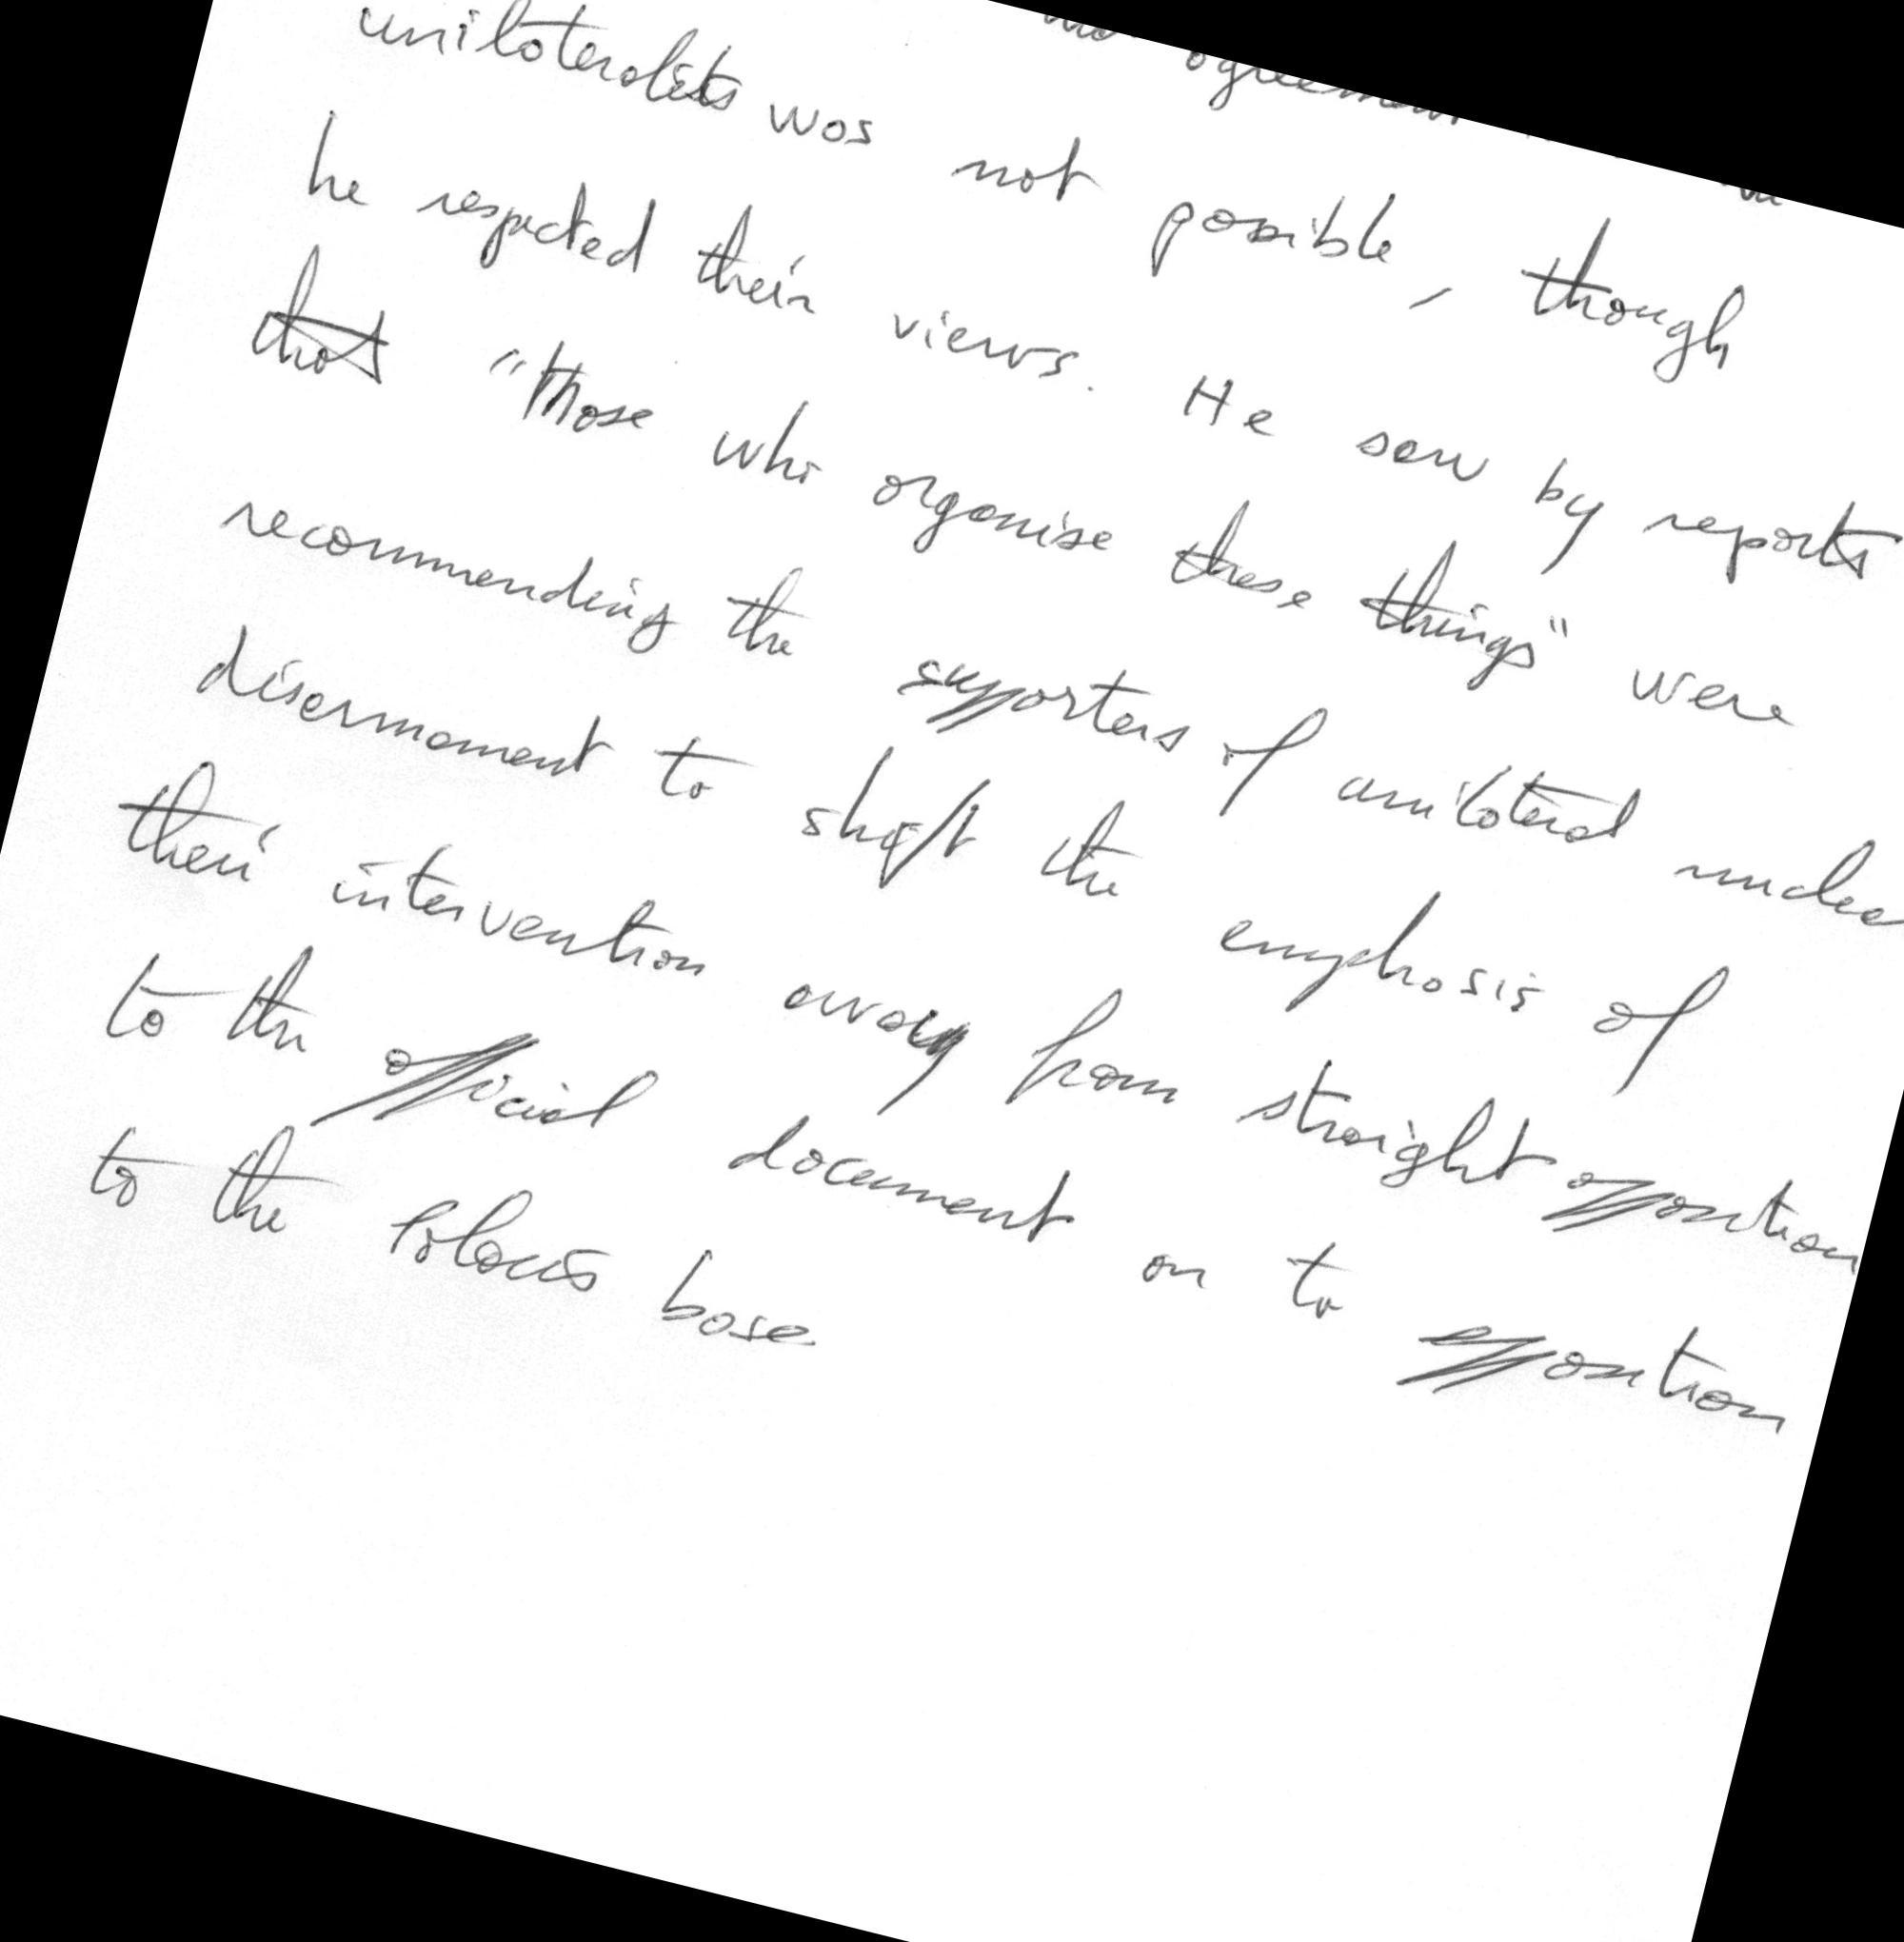 agreement
unilateralists was not possible, though
he respected their views. He saw by reports
that "those who organise these things" were
recommending the supporters of unilateral nuclea
disarmament to shift the emphasis of
their intervention away from straight opposition
to the official document on to opposition
to the Polaris base